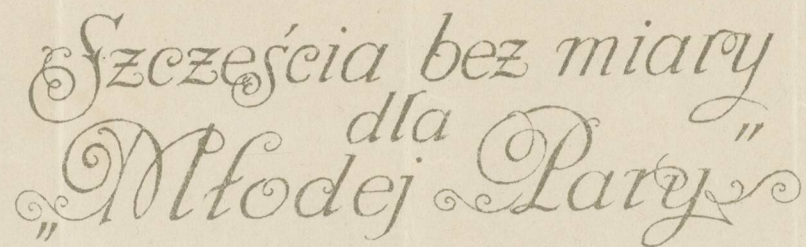 Szczęścia bez miary
dla
„Młodej Pary”